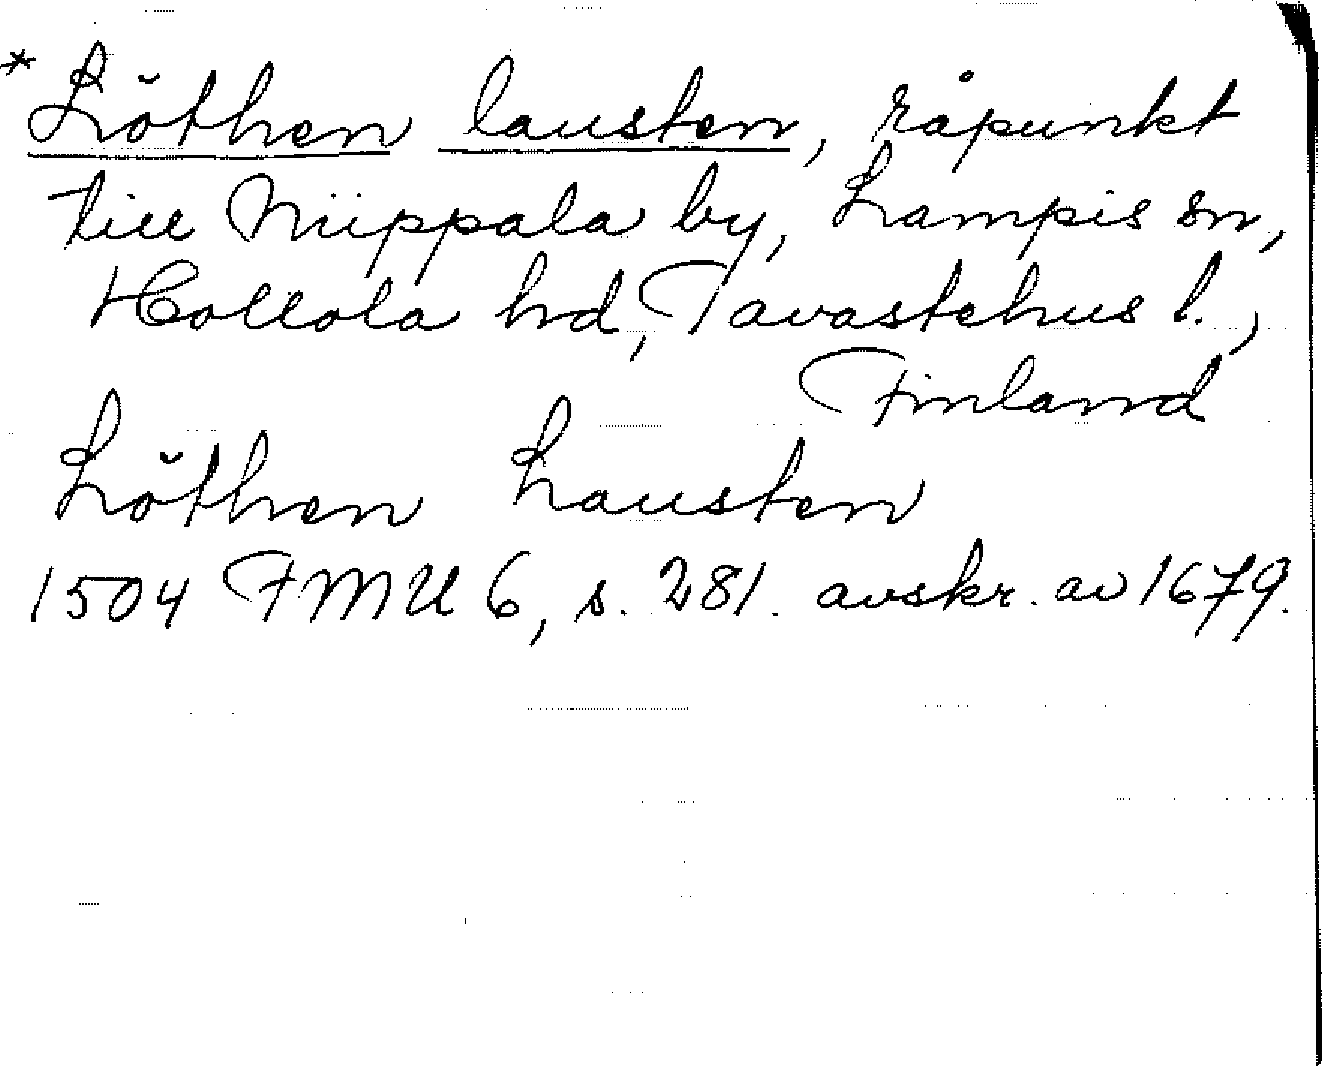 * Löthen lausten, råpunkt
till Niippala by, Lampis sn,
Hollola hd, Tavastehus l.,
Finland
Löthen Lausten
1504 FMU 6, s. 281. avskr. av 1679.